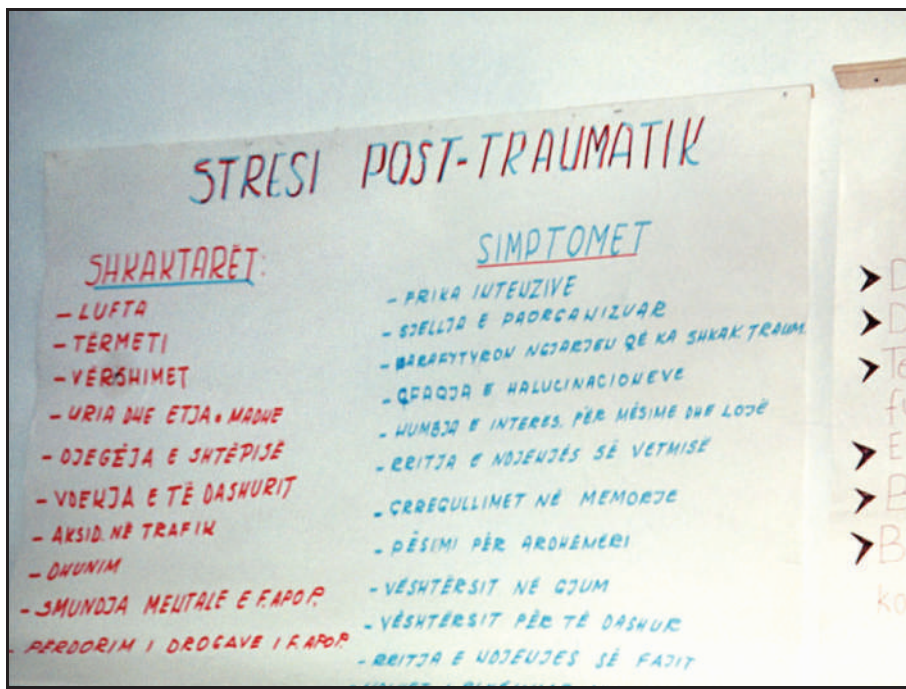 STRESI POST-TRAUMATIK
SHKAKTARËT:
- LUFTA
- TËRMETI
- VËRSHIMET
- URIA DHE ETJA E MADHE
- DJEGËJA E SHTËPISË
- VDEKJA E TË DASHURIT
- AKSID. NË TRAFIK
- DHUNIM
- SMUNDJA MENTALE E F. APO P.
- PERDORIM I DROGAVE I F. APO P.
SIMPTOMET
- FRIKA INTENZIVE
- SJELLJA E PAORGANIZUAR
- PARAFYTYRON NGJARJEN QË KA SHKAK. TRAUM.
- QFAQJA E HALUCINACIONEVE
- HUMBJA E INTERES. PËR MËSIME DHE LOJË
- RRITJA E NDJENJËS SË VETMISË
- ÇRREGULLIMET NË MEMORJE
- PËSIMI PËR ARDHËMERI
- VËSHTËRSIT NË GJUM
- VËSHTËRSIT PËR TË DASHUR
- RRITJA E NDJENJES SË FAJIT